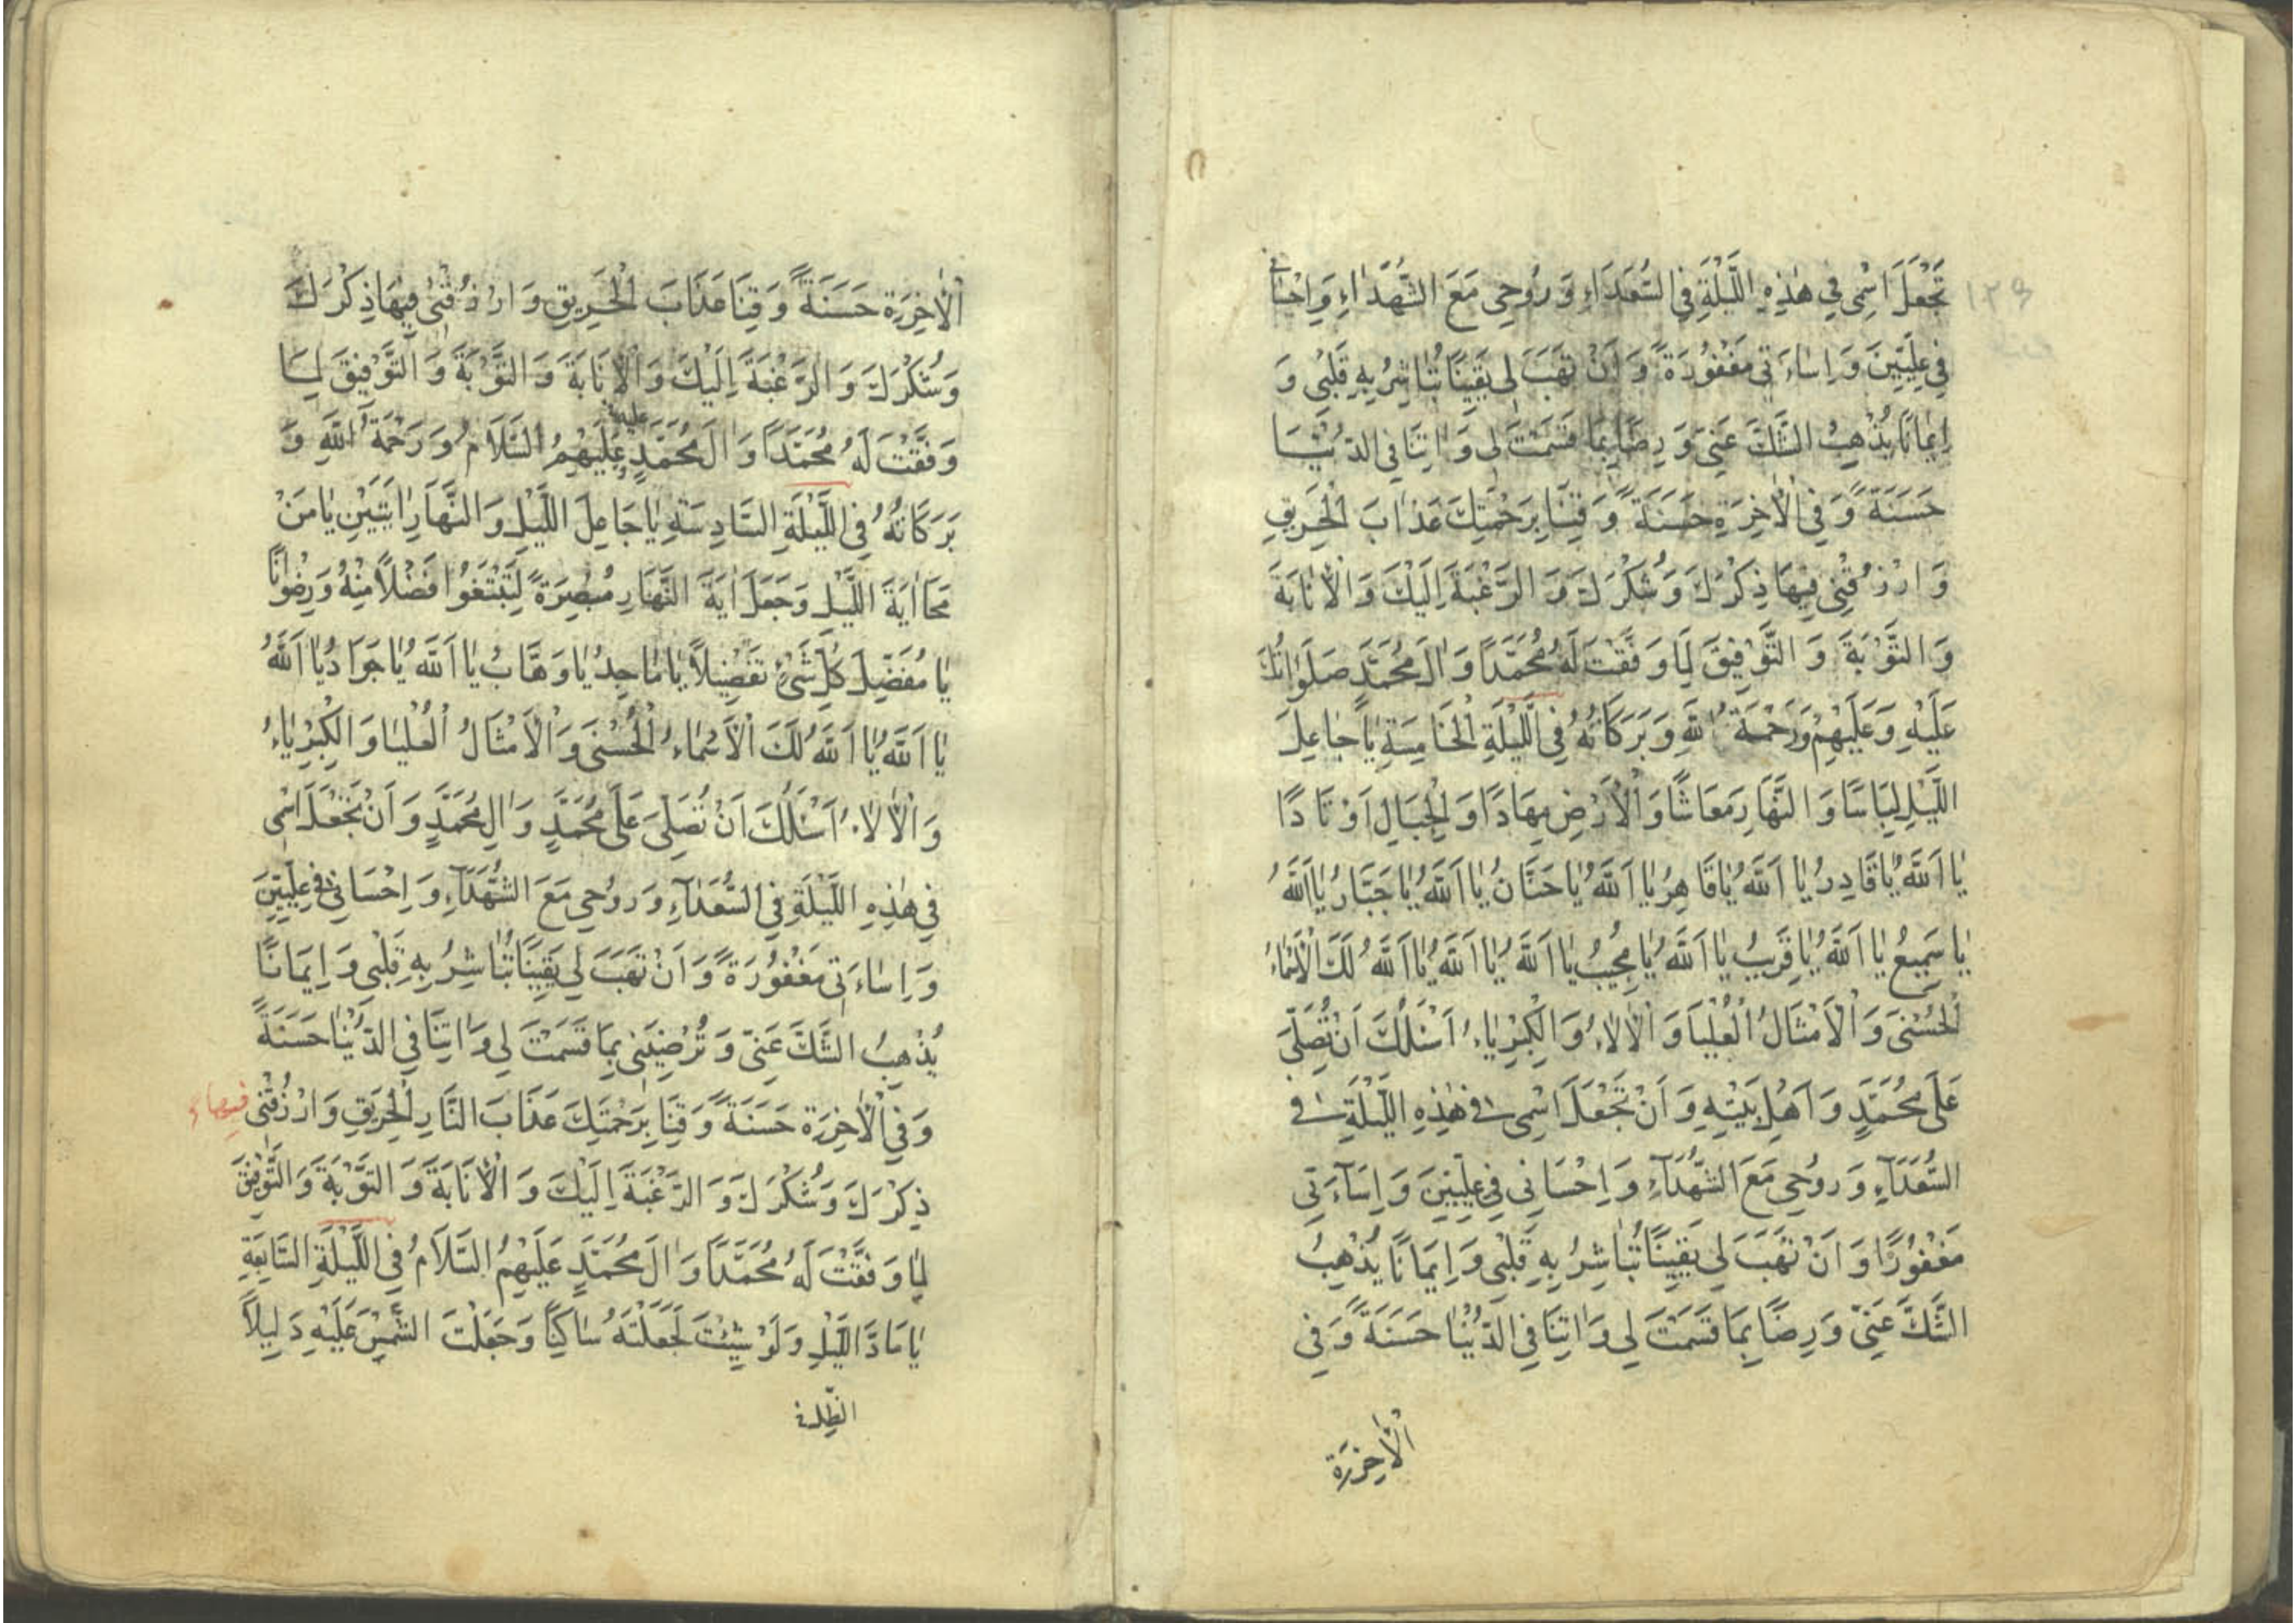 تَجْعَلَ اسْمِي فِي هٰذِهِ اللَّيْلَةِ فِي السُّعَدَاءِ وَرُوحِي مَعَ الشُّهَدَاءِ وَاِحْسَانِي
فِي عِلِّيِّينَ وَاِسَاءَتِي مَغْفُورَةً وَاَنْ تَهَبَ لِي يَقِينًا تُبَاشِرُ بِهِ قَلْبِي وَ
اِيمَانًا يُذْهِبُ الشَّكَّ عَنِّي وَرِضًا بِمَا قَسَمْتَ لِي وَاٰتِنَا فِي الدُّنْيَا
حَسَنَةً وَفِي الْاٰخِرَةِ حَسَنَةً وَقِنَا بِرَحْمَتِكَ عَذَابَ الْحَرِيقِ
وَارْزُقْنِي فِيهَا ذِكْرَكَ وَشُكْرَكَ وَالرَّغْبَةَ اِلَيْكَ وَالْاِنَابَةَ
وَالتَّوْبَةَ وَالتَّوْفِيقَ لِمَا وَفَّقْتَ لَهُ مُحَمَّدًا وَاٰلَ مُحَمَّدٍ صَلَوَاتُكَ
عَلَيْهِ وَعَلَيْهِمْ وَرَحْمَةُ اللّٰهِ وَبَرَكَاتُهُ فِي اللَّيْلَةِ الْخَامِسَةِ يَا جَاعِلَ
اللَّيْلِ لِبَاسًا وَالنَّهَارِ مَعَاشًا وَالْاَرْضِ مِهَادًا وَالْجِبَالِ اَوْتَادًا
يَا اَللّٰهُ يَا قَادِرُ يَا اَللّٰهُ يَا قَاهِرُ يَا اَللّٰهُ يَا حَنَّانُ يَا اَللّٰهُ يَا جَبَّارُ يَا اَللّٰهُ
يَا سَمِيعُ يَا اَللّٰهُ يَا قَرِيبُ يَا اَللّٰهُ يَا مُجِيبُ يَا اَللّٰهُ يَا اَللّٰهُ يَا اَللّٰهُ لَكَ الْاَسْمَاءُ
الْحُسْنٰى وَالْاَمْثَالُ الْعُلْيَا وَالْاٰلَاءُ وَالْكِبْرِيَاءُ اَسْئَلُكَ اَنْ تُصَلِّيَ
عَلٰى مُحَمَّدٍ وَاَهْلِ بَيْتِهِ وَاَنْ تَجْعَلَ اسْمِي فِي هٰذِهِ اللَّيْلَةِ فِي
السُّعَدَاءِ وَرُوحِي مَعَ الشُّهَدَاءِ وَاِحْسَانِي فِي عِلِّيِّينَ وَاِسَاءَتِي
مَغْفُورًا وَاَنْ تَهَبَ لِي يَقِينًا تُبَاشِرُ بِهِ قَلْبِي وَاِيمَانًا يُذْهِبُ
الشَّكَّ عَنِّي وَرِضًا بِمَا قَسَمْتَ لِي وَاٰتِنَا فِي الدُّنْيَا حَسَنَةً وَفِي
الْاٰخِرَةِ
١٢٩
الْاٰخِرَةِ حَسَنَةً وَقِنَا عَذَابَ الْحَرِيقِ وَارْزُقْنِي فِيهَا ذِكْرَكَ
وَشُكْرَكَ وَالرَّغْبَةَ اِلَيْكَ وَالْاِنَابَةَ وَالتَّوْبَةَ وَالتَّوْفِيقَ لِمَا
وَفَّقْتَ لَهُ مُحَمَّدًا وَاٰلَ مُحَمَّدٍ عليه عَلَيْهِمُ السَّلَامُ وَرَحْمَةُ اللّٰهِ وَ
بَرَكَاتُهُ فِي اللَّيْلَةِ السَّادِسَةِ يَا جَاعِلَ اللَّيْلِ وَالنَّهَارِ اٰيَتَيْنِ يَا مَنْ
مَحَا اٰيَةَ اللَّيْلِ وَجَعَلَ اٰيَةَ النَّهَارِ مُبْصِرَةً لِتَبْتَغُوا فَضْلًا مِنْهُ وَرِضْوَانًا
يَا مُفَصِّلَ كُلِّ شَيْءٍ تَفْصِيلًا يَا مَاجِدُ يَا وَهَّابُ يَا اَللّٰهُ يَا جَوَادُ يَا اَللّٰهُ
يَا اَللّٰهُ يَا اَللّٰهُ لَكَ الْاَسْمَاءُ الْحُسْنٰى وَالْاَمْثَالُ الْعُلْيَا وَالْكِبْرِيَاءُ
وَالْاٰلَاءُ اَسْئَلُكَ اَنْ تُصَلِّيَ عَلٰى مُحَمَّدٍ وَاٰلِ مُحَمَّدٍ وَاَنْ تَجْعَلَ اسْمِي
فِي هٰذِهِ اللَّيْلَةِ فِي السُّعَدَاءِ وَرُوحِي مَعَ الشُّهَدَاءِ وَاِحْسَانِي فِي عِلِّيِّينَ
وَاِسَاءَتِي مَغْفُورَةً وَاَنْ تَهَبَ لِي يَقِينًا تُبَاشِرُ بِهِ قَلْبِي وَاِيمَانًا
يُذْهِبُ الشَّكَّ عَنِّي وَتُرْضِيَنِي بِمَا قَسَمْتَ لِي وَاٰتِنَا فِي الدُّنْيَا حَسَنَةً
وَفِي الْاٰخِرَةِ حَسَنَةً وَقِنَا بِرَحْمَتِكَ عَذَابَ النَّارِ الْحَرِيقِ وَارْزُقْنِي فيها
ذِكْرَكَ وَشُكْرَكَ وَالرَّغْبَةَ اِلَيْكَ وَالْاِنَابَةَ وَالتَّوْبَةَ وَالتَّوْفِيقَ
لِمَا وَفَّقْتَ لَهُ مُحَمَّدًا وَاٰلَ مُحَمَّدٍ عَلَيْهِمُ السَّلَامُ فِي اللَّيْلَةِ السَّابِعَةِ
يَا مَادَّ الظِّلِّ وَلَوْ شِئْتَ لَجَعَلْتَهُ سَاكِنًا وَجَعَلْتَ الشَّمْسَ عَلَيْهِ دَلِيلًا